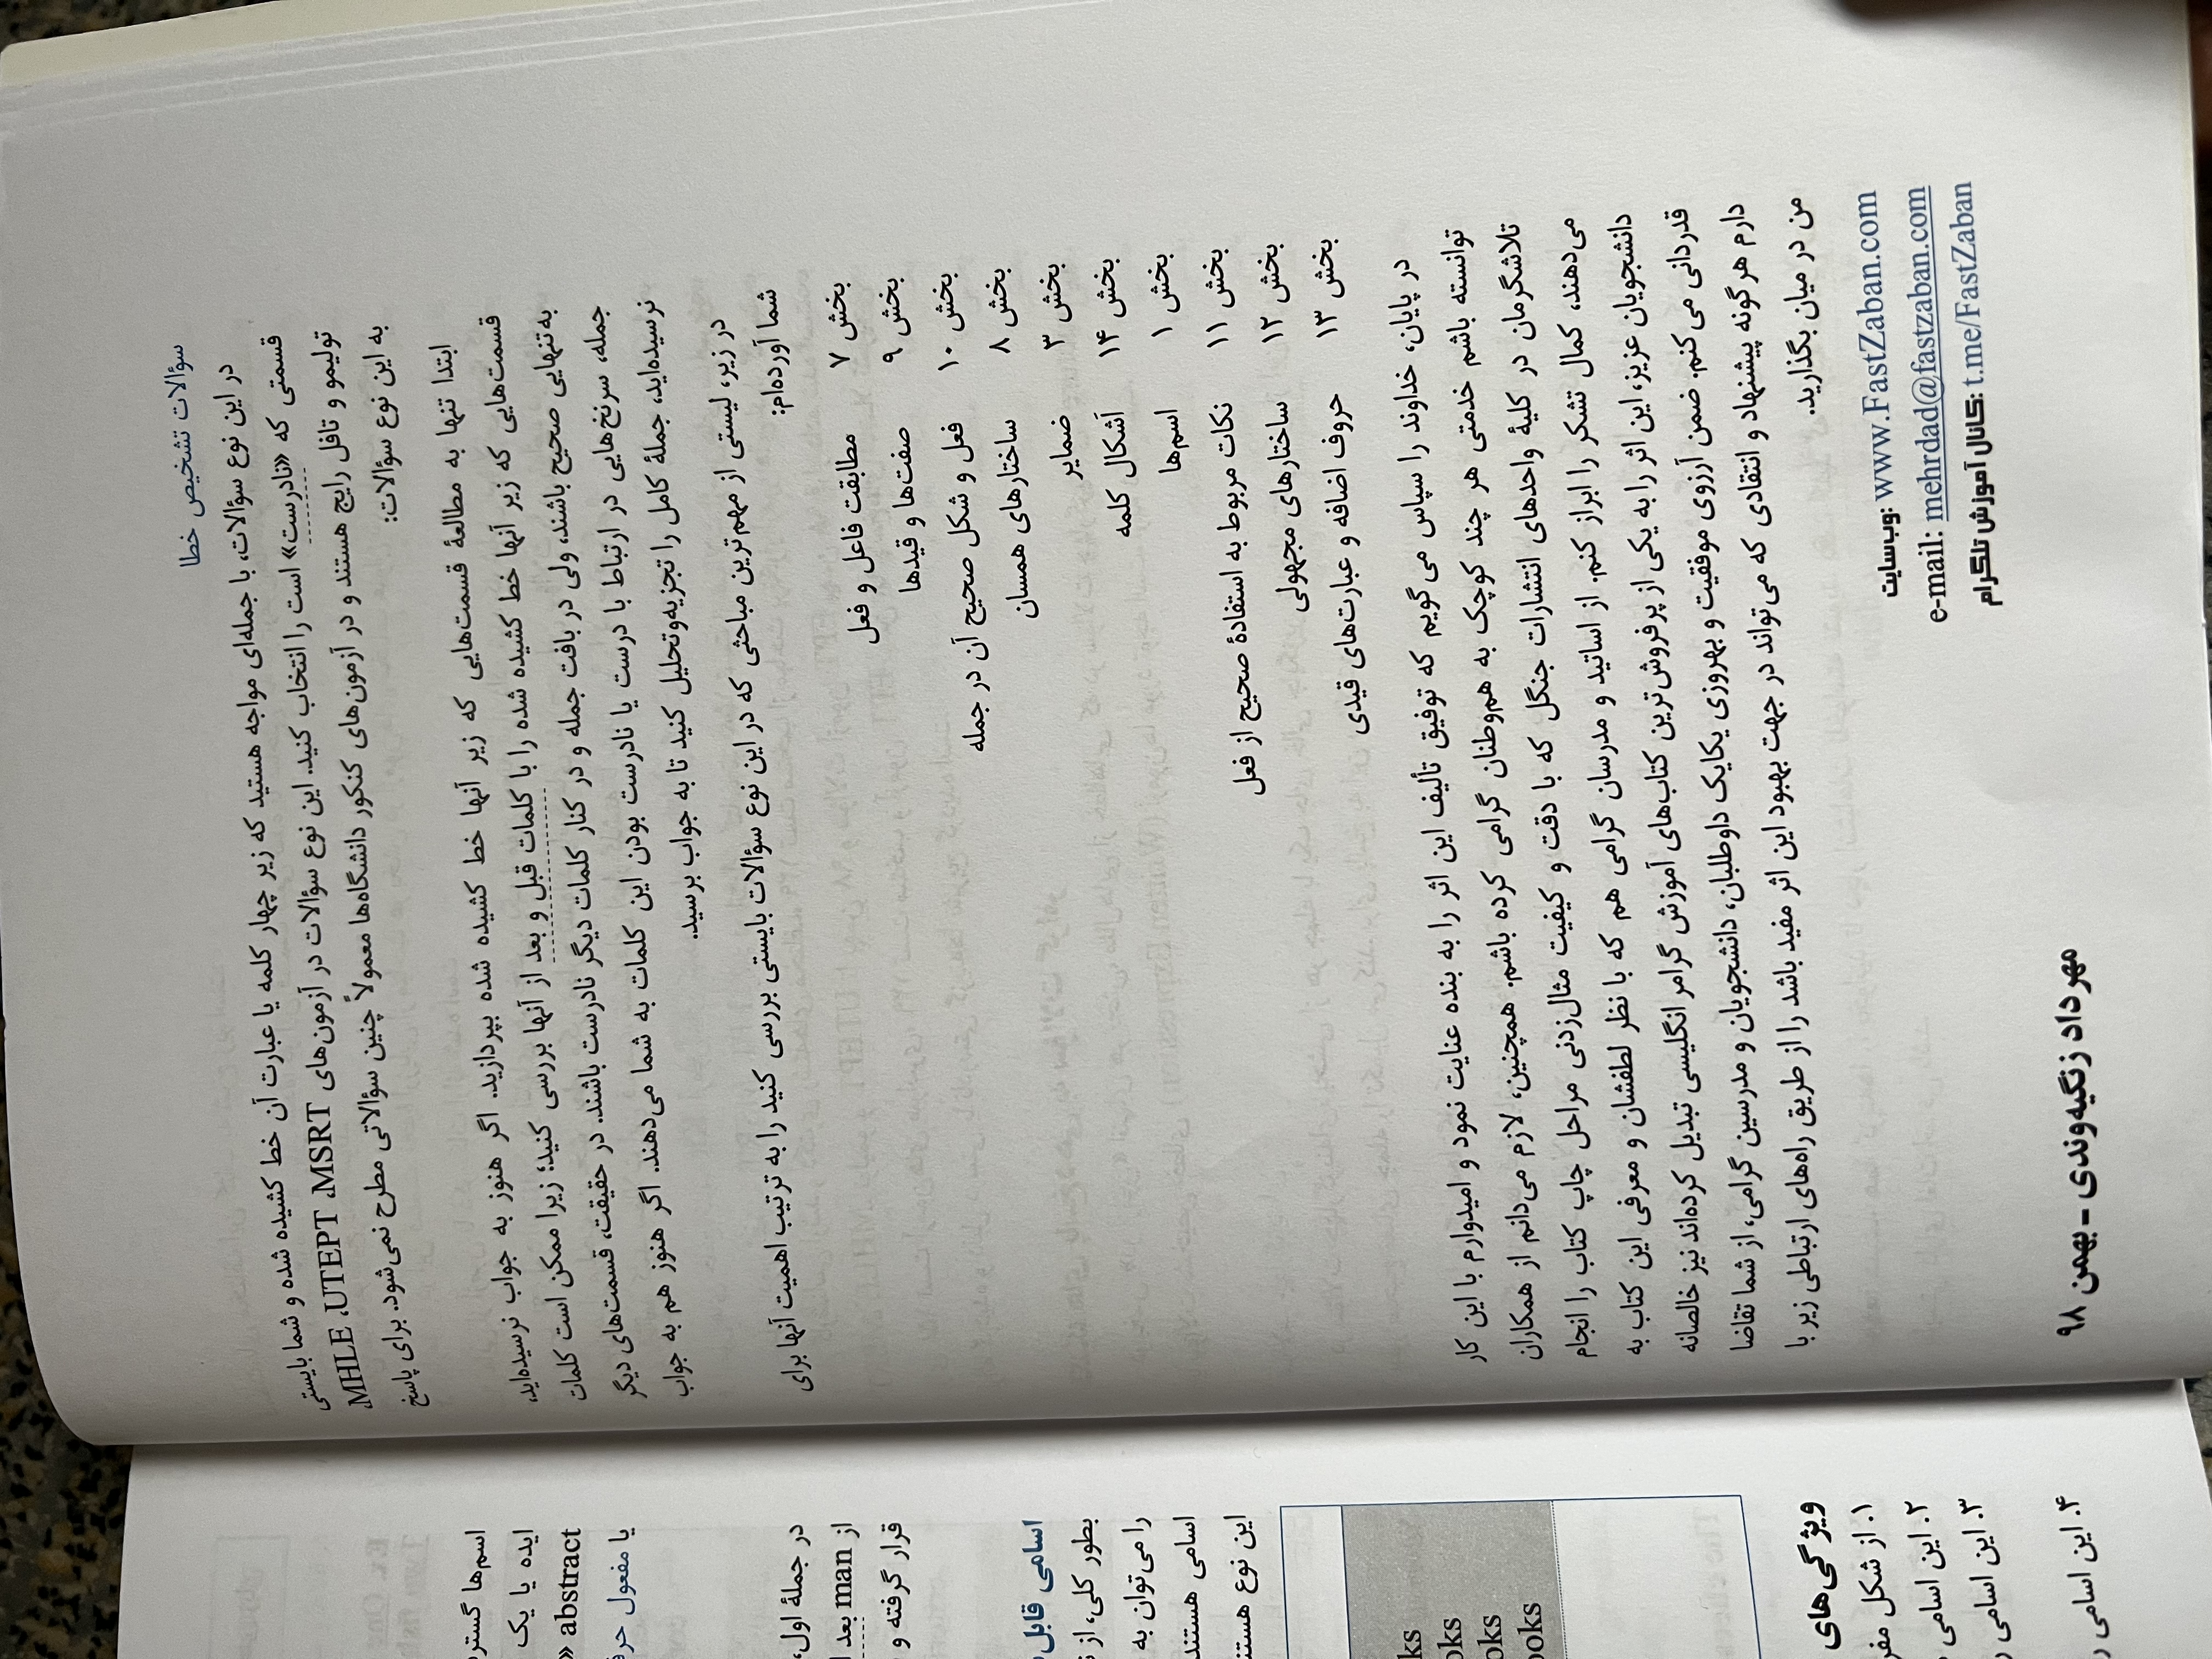 سؤالات تشخیص خطا
در این نوع سؤالات، با جمله‌ای مواجه هستید که زیر چهار کلمه یا عبارت آن خط کشیده شده و شما بایستی
قسمتی که «نادرست» است را انتخاب کنید. این نوع سؤالات در آزمون‌های MHLE ،UTEPT ،MSRT،
تولیمو و تافل رایج هستند و در آزمون‌های کنکور دانشگاه‌ها معمولاً چنین سؤالاتی مطرح نمی‌شود. برای پاسخ
به این نوع سؤالات:
ابتدا تنها به مطالعهٔ قسمت‌هایی که زیر آنها خط کشیده شده بپردازید. اگر هنوز به جواب نرسیده‌اید،
قسمت‌هایی که زیر آنها خط کشیده شده را با کلمات قبل و بعد از آنها بررسی کنید؛ زیرا ممکن است کلمات
به‌تنهایی صحیح باشند، ولی در بافت جمله و در کنار کلمات دیگر نادرست باشند. در حقیقت، قسمت‌های دیگر
جمله، سرنخ‌هایی در ارتباط با درست یا نادرست بودن این کلمات به شما می‌دهند. اگر هنوز هم به جواب
نرسیده‌اید، جملهٔ کامل را تجزیه‌وتحلیل کنید تا به جواب برسید.
در زیر، لیستی از مهم‌ترین مباحثی که در این نوع سؤالات بایستی بررسی کنید را به ترتیب اهمیت آنها برای
شما آورده‌ام:
بخش ۷ مطابقت فاعل و فعل
بخش ۹ صفت‌ها و قیدها
بخش ۱۰ فعل و شکل صحیح آن در جمله
بخش ۸ ساختارهای همسان
بخش ۳ ضمایر
بخش ۱۴ اَشکال کلمه
بخش ۱ اسم‌ها
بخش ۱۱ نکات مربوط به استفادهٔ صحیح از فعل
بخش ۱۲ ساختارهای مجهولی
بخش ۱۳ حروف اضافه و عبارت‌های قیدی
در پایان، خداوند را سپاس می‌گویم که توفیق تألیف این اثر را به بنده عنایت نمود و امیدوارم با این کار
توانسته باشم خدمتی هر چند کوچک به هم‌وطنان گرامی کرده باشم. همچنین، لازم می‌دانم از همکاران
تلاشگرمان در کلیهٔ واحدهای انتشارات جنگل که با دقت و کیفیت مثال‌زدنی مراحل چاپ کتاب را انجام
می‌دهند، کمال تشکر را ابراز کنم. از اساتید و مدرسان گرامی هم که با نظر لطفشان و معرفی این کتاب به
دانشجویان عزیز، این اثر را به یکی از پرفروش‌ترین کتاب‌های آموزش گرامر انگلیسی تبدیل کرده‌اند نیز خالصانه
قدردانی می‌کنم. ضمن آرزوی موفقیت و بهروزی یکایک داوطلبان، دانشجویان و مدرسین گرامی، از شما تقاضا
دارم هر گونه پیشنهاد و انتقادی که می‌تواند در جهت بهبود این اثر مفید باشد را از طریق راه‌های ارتباطی زیر با
من در میان بگذارید.
وب‌سایت: www.FastZaban.com
e-mail: mehrdad@fastzaban.com
کانال آموزش تلگرام: t.me/FastZaban
مهرداد زنگیه‌وندی - بهمن ۹۸
اسم‌ها
ایده یا یک
abstract «
یا مفعول
در جملهٔ اول،
از man بعد
قرار گرفته و
اسامی قابل
بطور کلی، از
را می‌توان به
اسامی هستند
این نوع
ooks
ooks
ooks
ویژگی‌های
۱. از شکل
۲. این اسامی
۳. این اسامی
۴. این اسامی